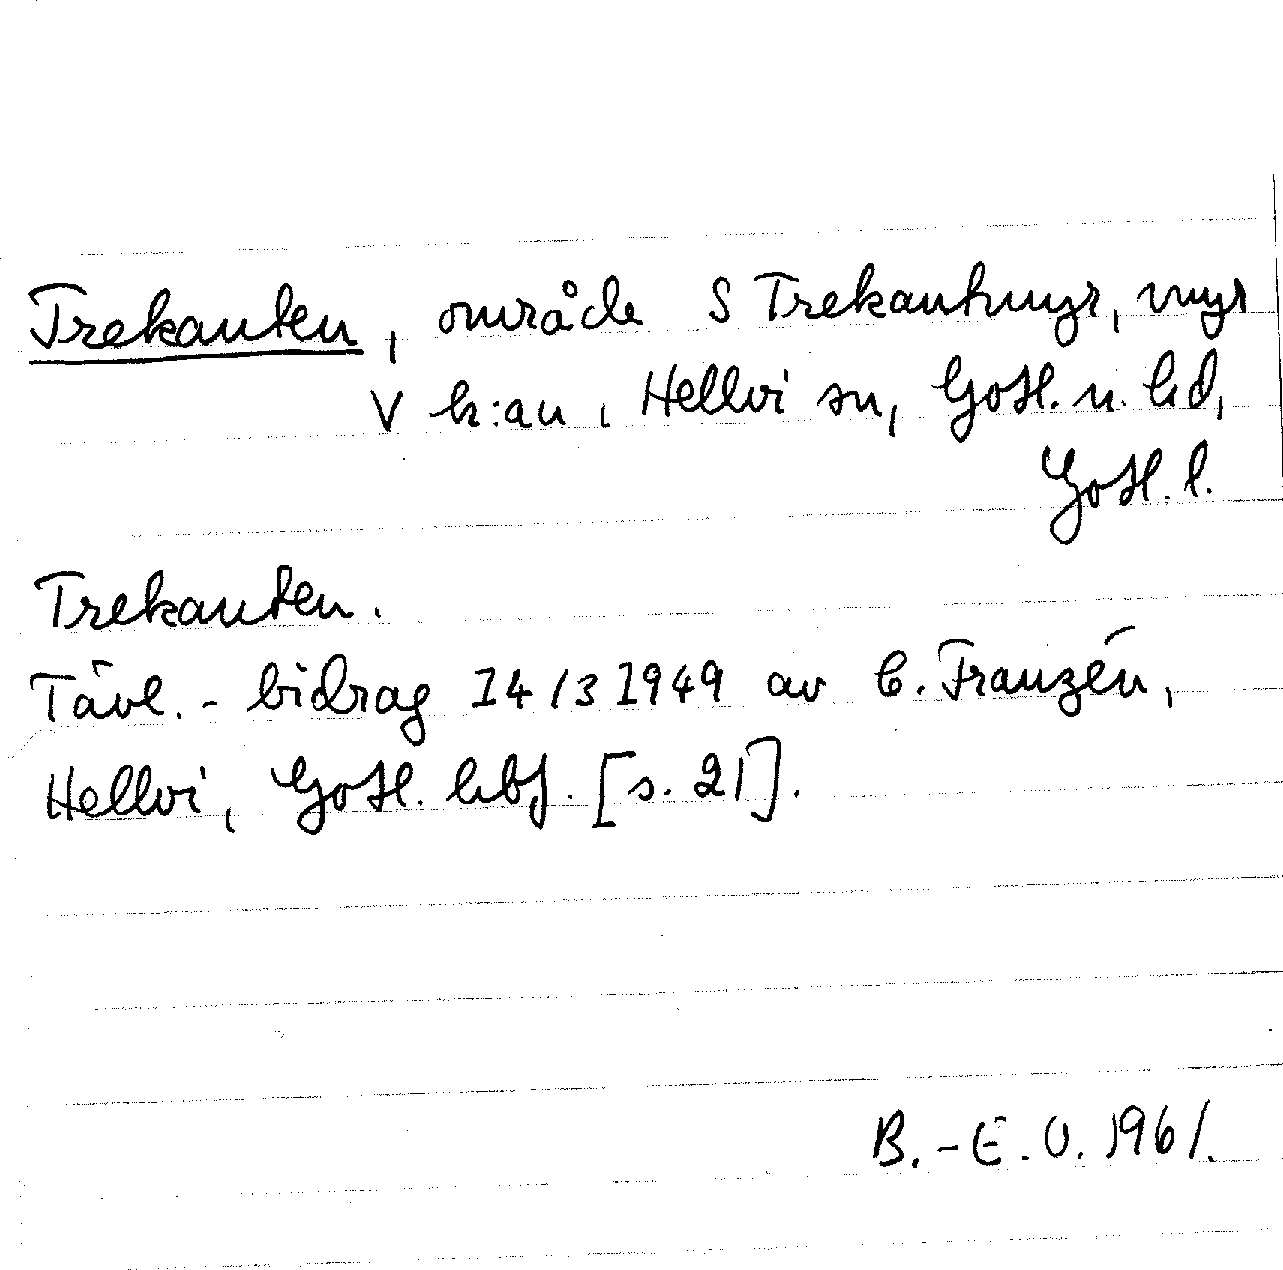 Trekanten, område S Trekantmyr, myr
V k:an, Hellvi sn, Gotl. n. hd,
Gotl. l.
Trekanten.
Tävl.-bidrag 14/3 1949 av C. Franzén,
Hellvi, Gotl. hbf. [s. 21].
B.-E. O. 1961.